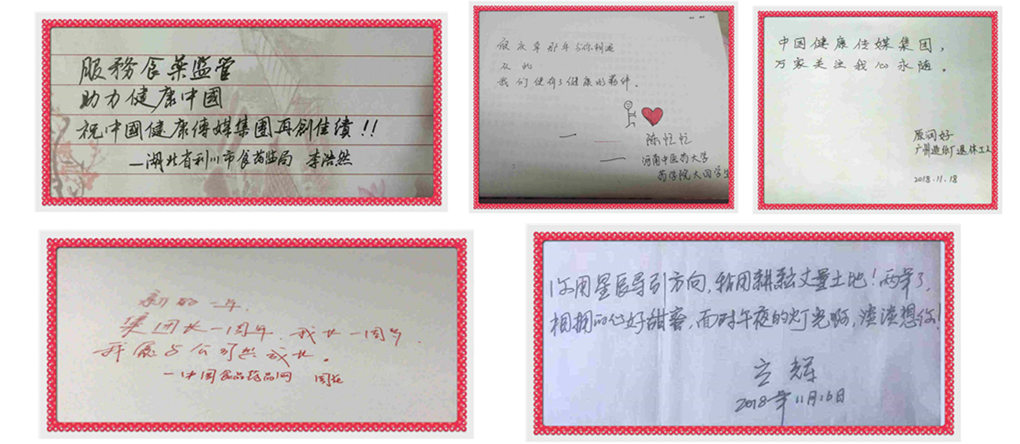 服務食药监管
助力健康中國
祝中國健康傳媒集團再創佳績!!
—湖北省利川市食药监局 李浩然
那年与你相遇
从此
我们便有了健康的药伴。
陈忆忆
河南中医药大学
药学院大四学生
中国健康传媒集团,
万家关注我心永随。
广州造纸厂退休工人
2018.11.18
新的一年,
集团长一周岁,我长一周岁
我愿与公司共成长。
—中国食品药品网
你用星辰导引方向,我用耕耘丈量土地!两年了,
相拥的心好甜蜜,面对午夜的灯光啊,淡淡想你!
立辉
2018年11月16日